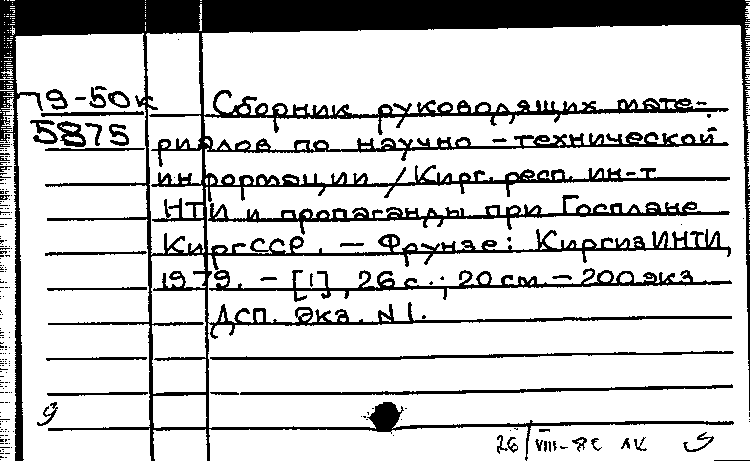 79-50к Сборник руководящих мате-
5875 риалов по научно-технической
информации / Кирг. респ. ин-т
НТИ и пропаганды при Госплане
КиргССР. — Фрунзе: КиргизИНТИ,
1979. — [1], 26 с.; 20 см. — 200 экз
Дсп. Экз. N1.
9
26/VIII-